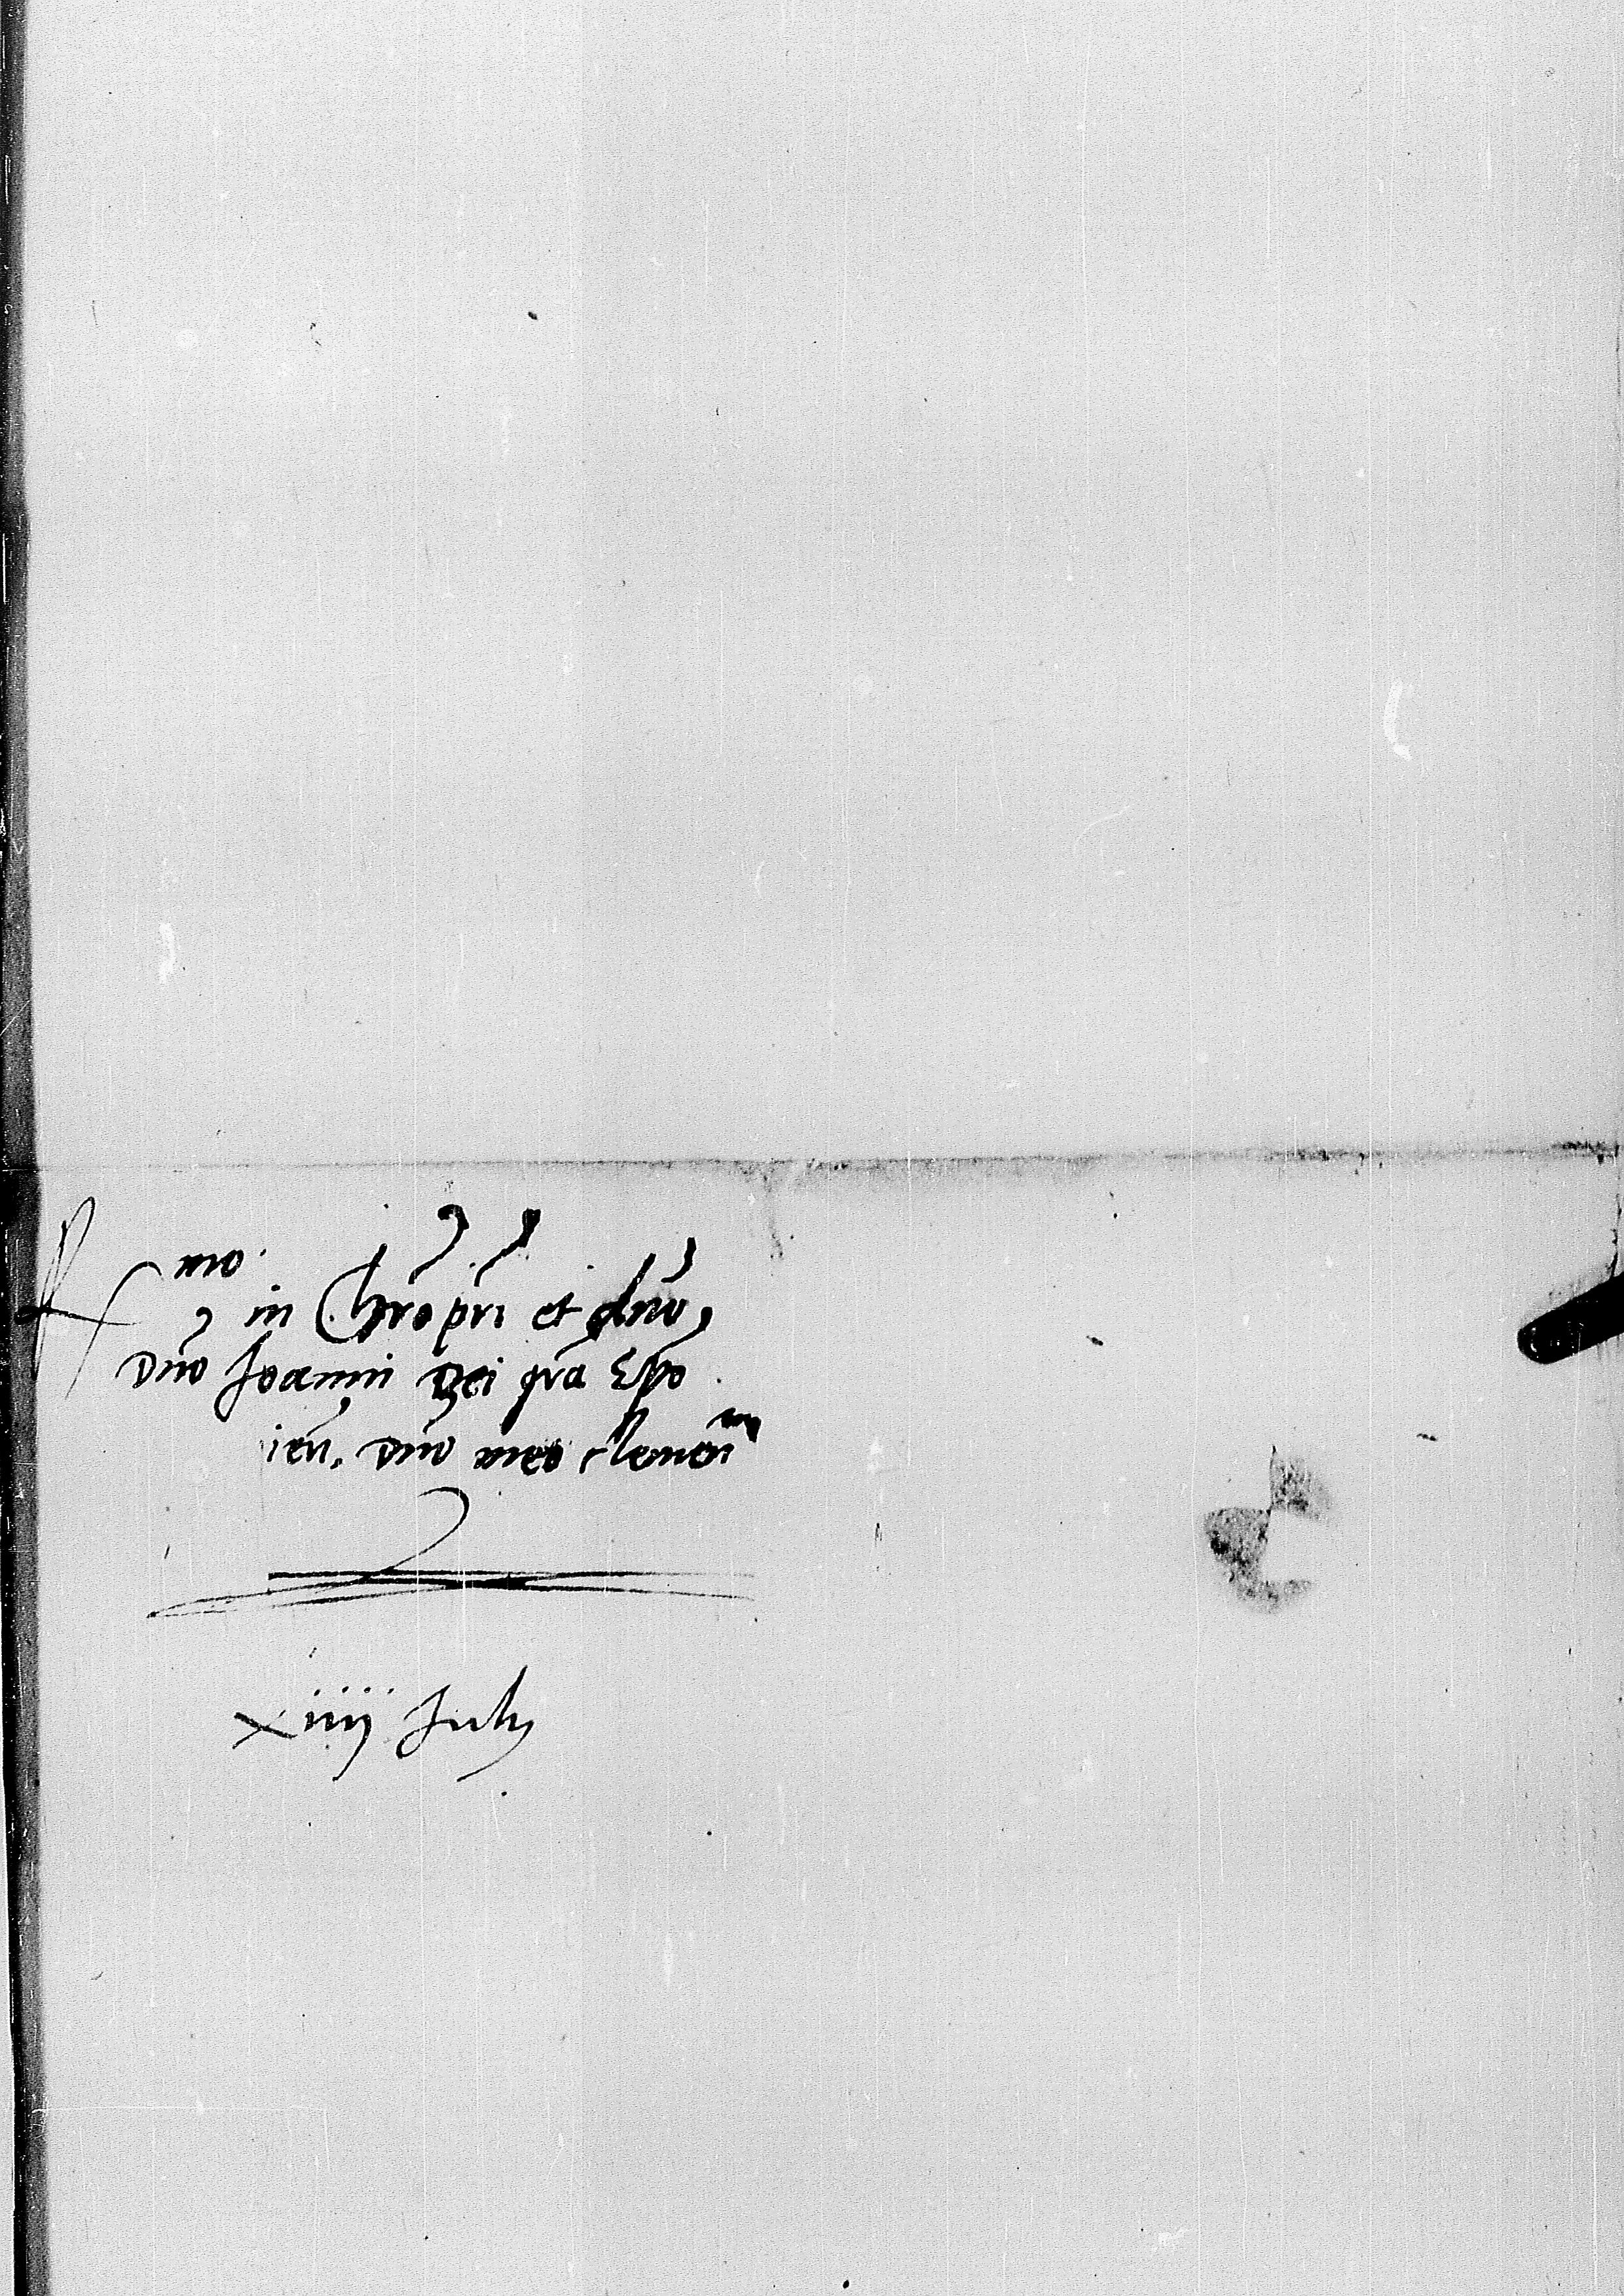 R mo in Chro pri et dno,
Dno Joanni Dei gra Epo
ien. Dno meo clemen mo
xiiij Julij